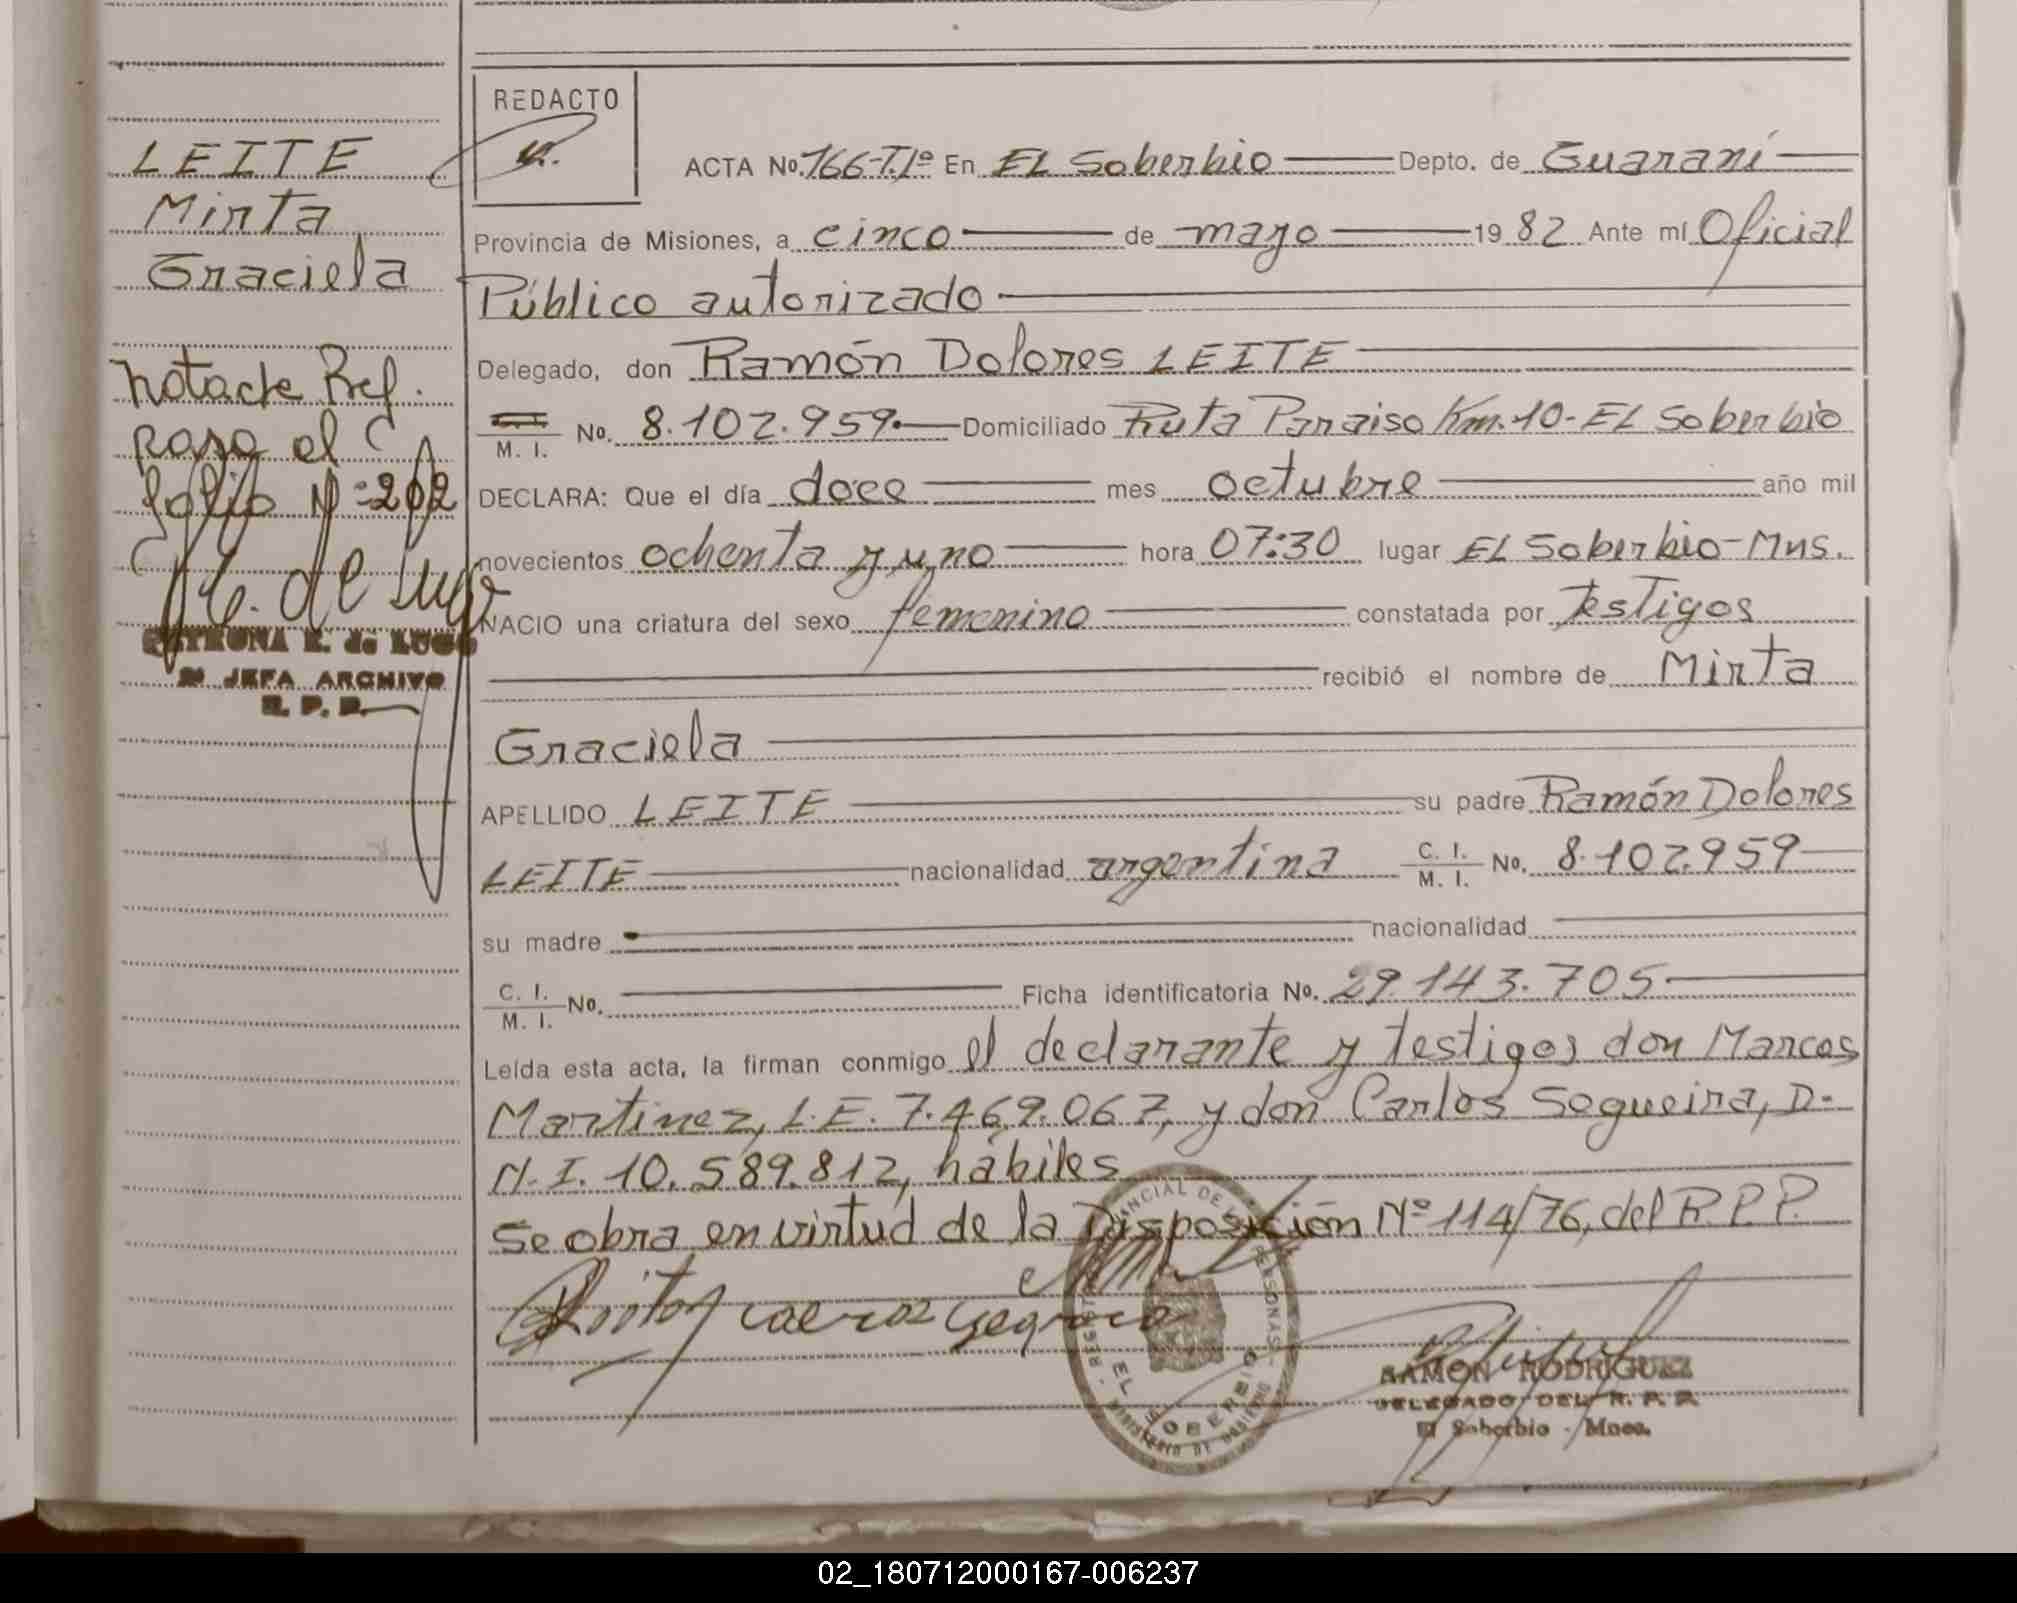 LEITE
Mirta
Graciela
Nota de Ref.
pasa al
folio Nº 202
PETRONA E. de LUGO
JEFA ARCHIVO
R. P. P.
REDACTO
ACTA No. 166-T.Iº En EL Soberbio Depto. de Guaraní
Provincia de Misiones, a cinco de mayo 19 82 Ante mí Oficial
Público autorizado
Delegado, don Ramón Dolores LEITE
M. I. No. 8.102.959. Domiciliado Ruta Paraiso Km. 10 - EL Soberbio
DECLARA: Que el día doce mes octubre año mil
novecientos ochenta y uno hora 07:30 lugar EL Soberbio - Mns.
NACIO una criatura del sexo femenino constatada por testigos
recibió el nombre de Mirta
Graciela
APELLIDO LEITE su padre Ramón Dolores
LEITE nacionalidad argentina C. I. M. I. No. 8.102.959
su madre nacionalidad
C. I. M. I. No. Ficha identificatoria No. 29.143.705
Leída esta acta, la firman conmigo el declarante y testigos don Marcos
Martinez, L.E. 7.469.067, y don Carlos Sequeira, D.
N.I. 10.589.812, hábiles
Se obra en virtud de la Disposición Nº 114/76, del R.P.P.
EL SOBERBIO
MINISTERIO DE GOBIERNO
RAMON RODRIGUEZ
DELEGADO DEL R. P. P.
El Soberbio - Mnes.
02_180712000167-006237